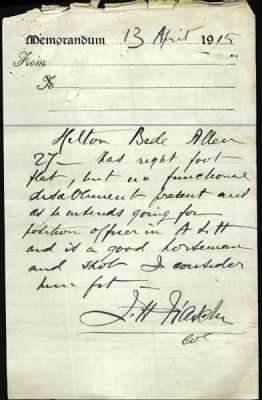 Memorandum 13 April 1915
From
To
Hilton Bede Allen
27 — has right foot
flat, but no functional
disablement present and
as he intends going for
position officer in A L H
and is a good horseman
and shot I consider
him fit —
J. H.
Col